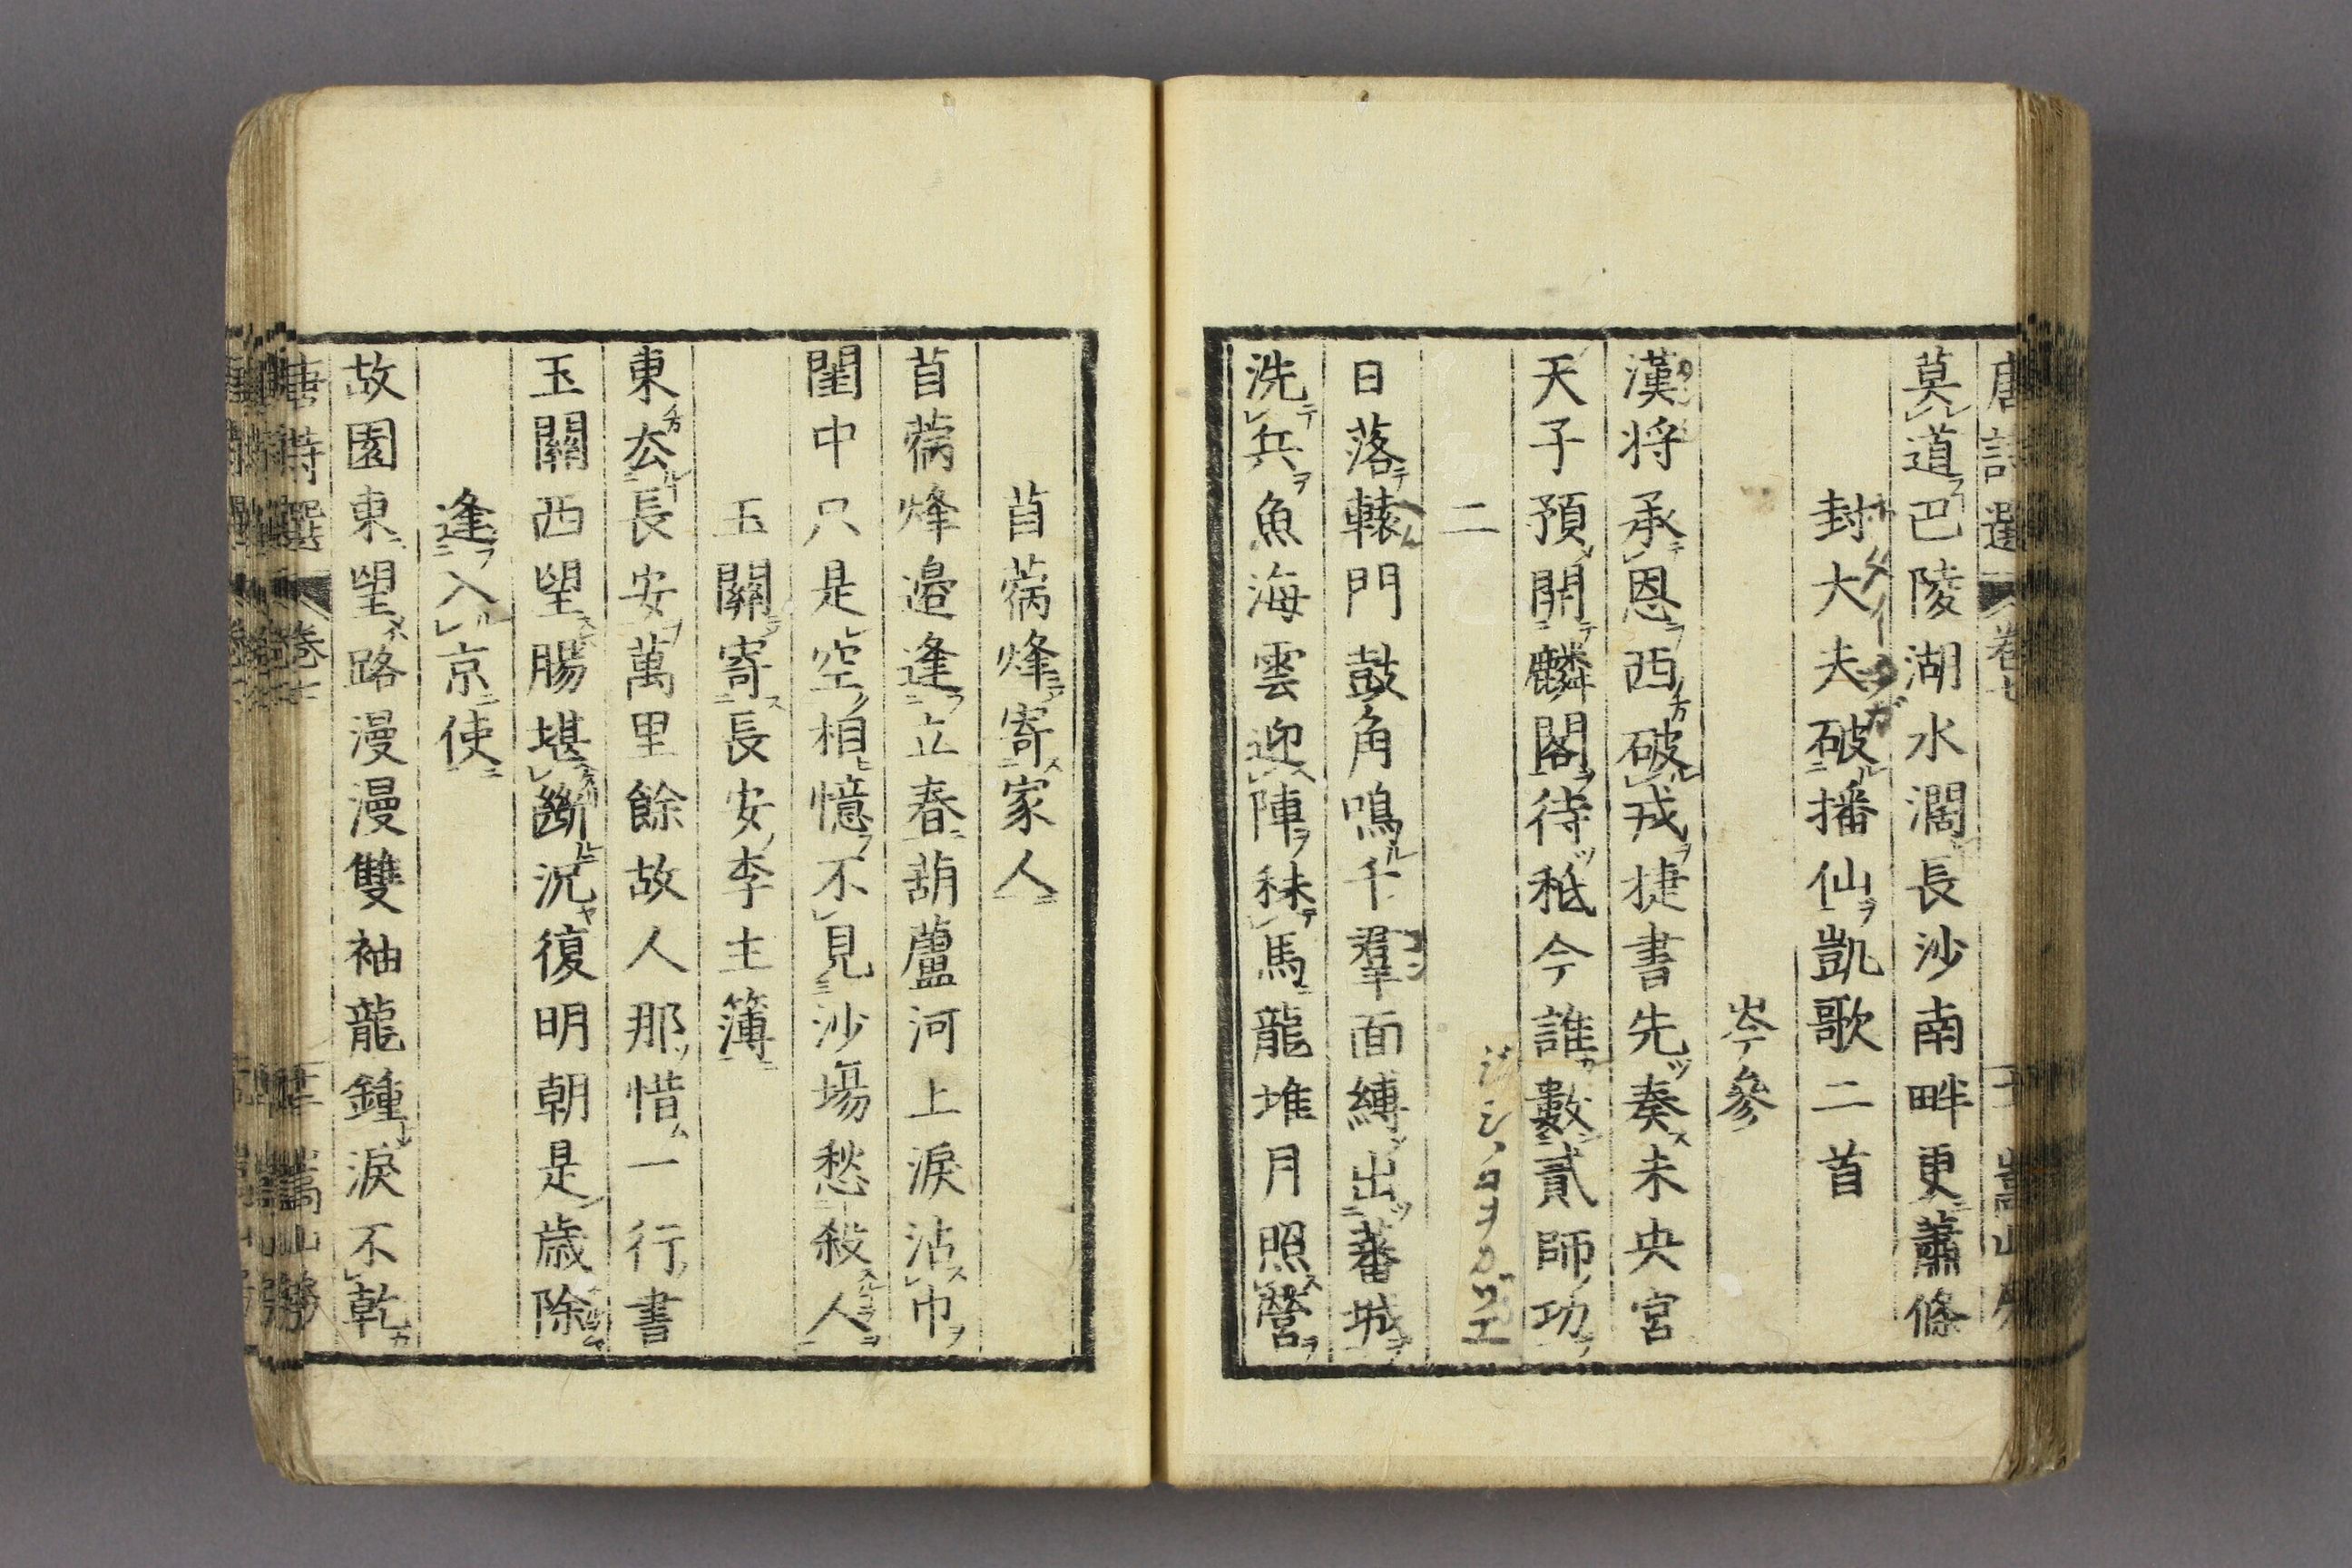 唐詩選 卷七
莫道巴陵湖水濶長沙南畔更蕭條
封大夫破播仙凱歌二首
岑參
漢将承恩西破戎捷書先奏未央宮
天子預開麟閣待秪今誰數貳師功
二
日落轅門鼓角鳴千羣面縛出蕃城
洗兵魚海雲迎陣秣馬龍堆月照營
苜蓿烽寄家人
苜蓿烽邉逢立春葫蘆河上淚沾巾
閨中只是空相憶不見沙塲愁殺人
玉關寄長安李主簿
東去長安萬里餘故人那惜一行書
玉關西望腸堪斷況復明朝是歳除
逢入京使
故園東望路漫漫雙袖龍鍾淚不乾
唐詩選 卷七